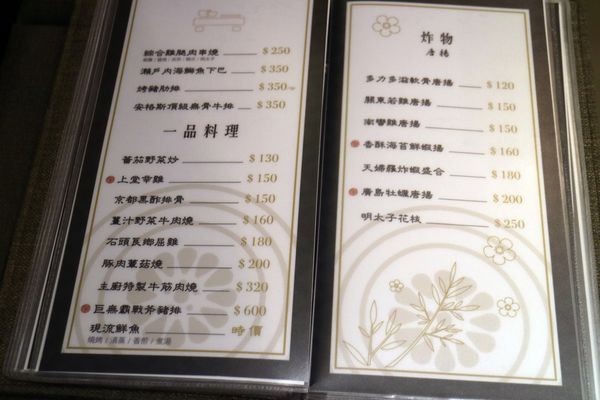 綜合雞腿肉串燒 $250
瀨戶內海鰤魚下巴 $350
烤豬肋排 $350
安格斯頂級無骨牛排 $350
一品料理
蕃茄野菜炒 $130
上堂辛雞 $150
京都黑酢排骨 $150
薑汁野菜牛肉燒 $160
石頭長鄉屈雞 $180
豚肉蕈菇燒 $200
主廚特製牛筋肉燒 $320
巨無霸戰斧豬排 $600
現流鮮魚 時價
燒烤/清蒸/香煎/煮湯
炸物
唐揚
多力多滋軟骨唐揚 $120
關東若雞唐揚 $150
南蠻雞唐揚 $150
香酥海苔鮮蝦揚 $160
天婦羅炸蝦盛合 $180
廣島牡蠣唐揚 $200
明太子花枝 $250